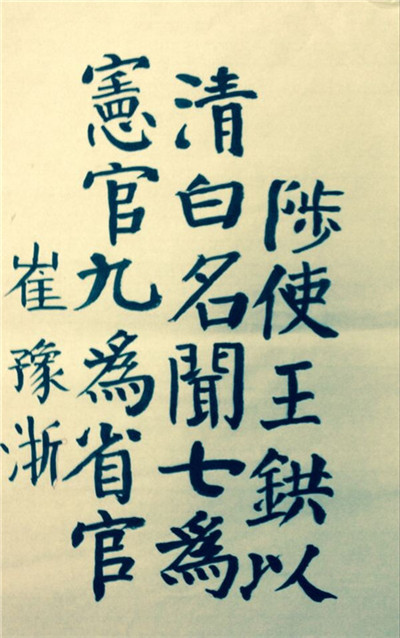 陟使王鉷以
清白名聞七為
憲官九為省官
崔豫浙